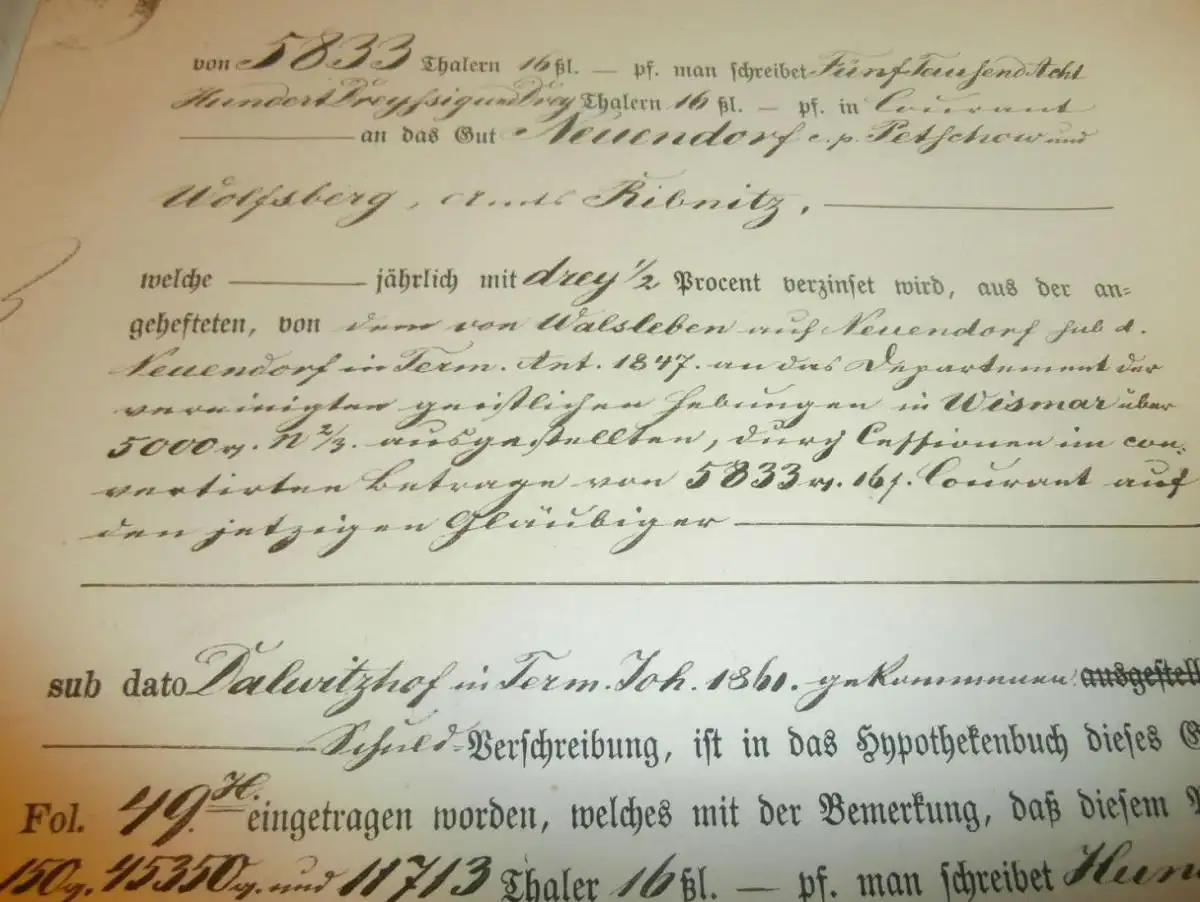 von 5833 Thalern 16 ßl. — pf. man schreibet Fünf Tausend Acht
Hundert Dreyssig und Drey Thalern 16 ßl. — pf. in Courant
an das Gut Neuendorf c. p. Petschow und
Wolfsberg, Amts Ribnitz,
welche jährlich mit drey 1/2 Procent verzinset wird, aus der an=
gehefteten, von dem von Walsleben auf Neuendorf sub d.
Neuendorf in Term. Ant. 1847. an das Departement der
vereinigten geistlichen Hebungen in Wismar über
5000 N 2/3. ausgestellten, durch Cessionen im con=
vertirten Betrage von 5833 16 Courant auf
den jetzigen Gläubiger
sub dato Dalwitzhof in Term. Joh. 1861. gekommenen ausgestell
Schuld=Verschreibung, ist in das Hypothekenbuch dieses G
Fol. 49. H. eingetragen worden, welches mit der Bemerkung, daß diesem
150 45350 und 11713 Thaler 16 ßl. — pf. man schreibet Hun